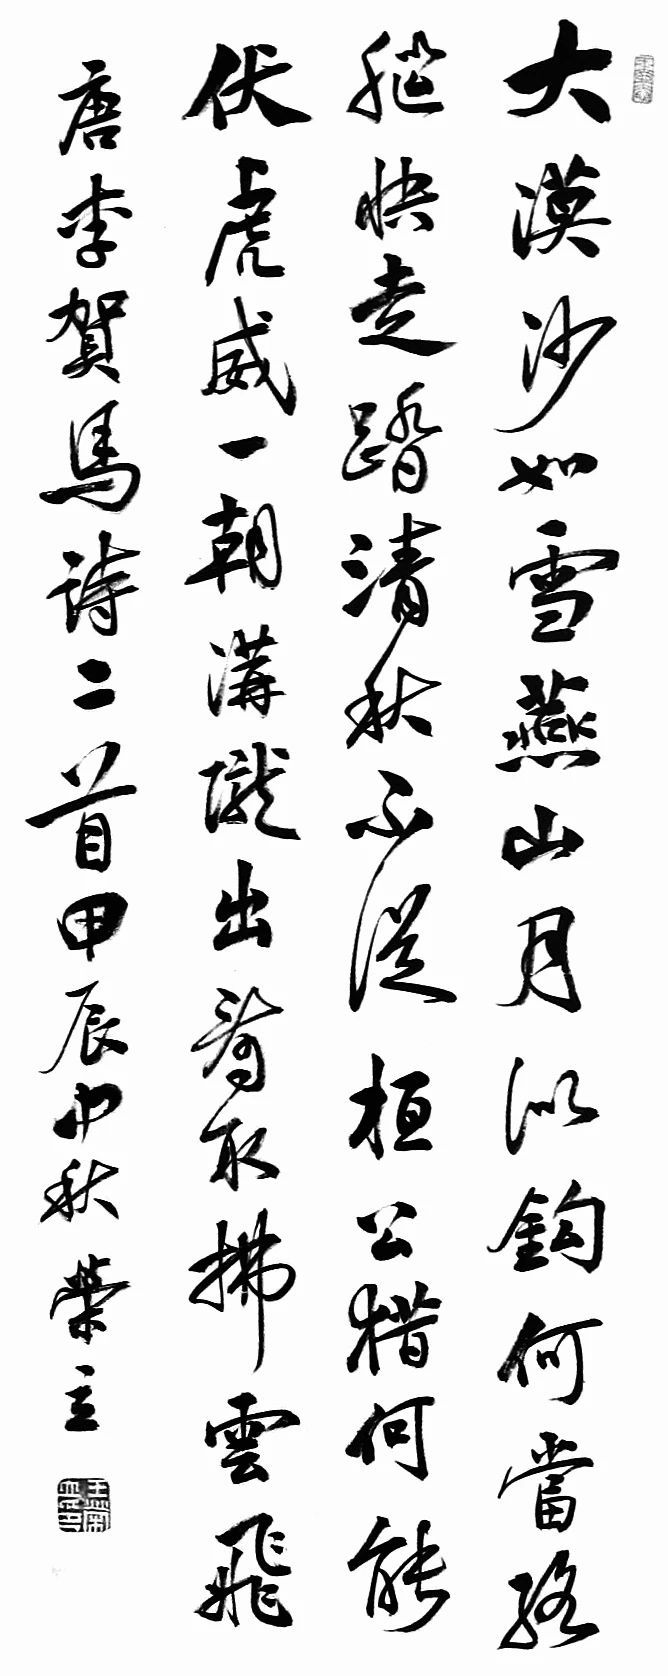 大漠沙如雪燕山月似鈎何當絡
腦快走踏清秋不從桓公猎何能
伏虎威一朝溝壠出看取拂雲飛
唐李賀馬詩二首甲辰中秋榮立